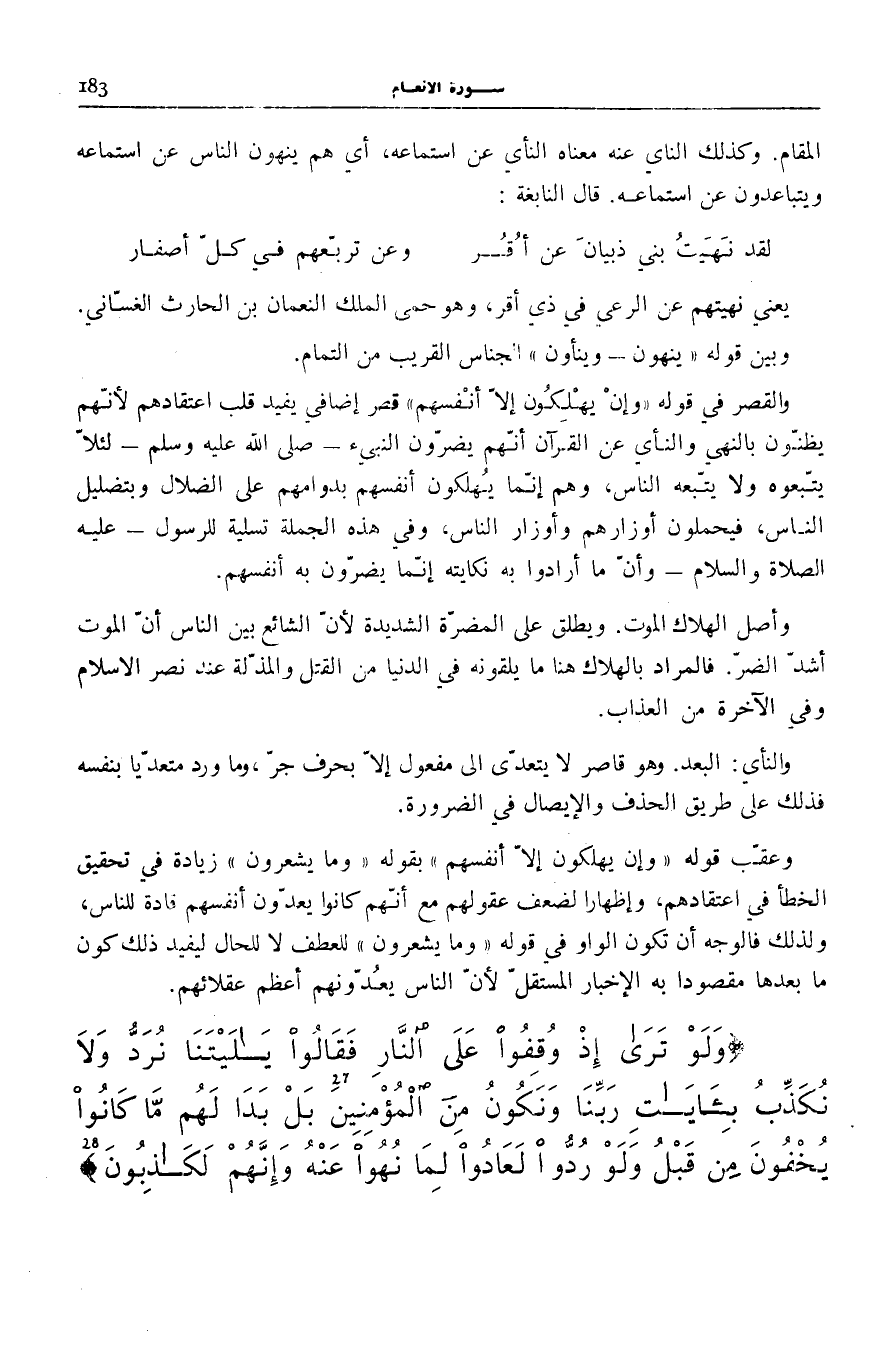 سـورة الانعـام 183
المقام. وكذلك الناي عنه معناه النأي عن استماعه، أي هم ينهون الناس عن استماعه
ويتباعدون عن استماعـه. قال النابغة :
لقد نَهَيتُ بني ذبيانَ عن أُقُــر وعن تربّعهم فـي كـلّ أصفـار
يعني نهيتهم عن الرعي في ذي أقر، وهو حمى الملك النعمان بن الحارث الغسّاني.
وبين قوله « ينهون — وينأون » الجناس القريب من التمام.
والقصر في قوله «وإنْ يهْلِكُون إلاّ أنْفسهم» قصر إضافي يفيد قلب اعتقادهم لأنّهم
يظنّون بالنهي والنأي عن القرآن أنّهم يضرّون النبيء — صلى الله عليه وسلم — لئلاّ
يتّبعوه ولا يتّبعه الناس، وهم إنّما يُهلكون أنفسهم بدوامهم على الضلال وبتضليل
النـاس، فيحملون أوزارهم وأوزار الناس، وفي هذه الجملة تسلية للرسول — عليـه
الصلاة والسلام — وأنّ ما أرادوا به نكايته إنّما يضرّون به أنفسهم.
وأصل الهلاك الموت. ويطلق على المضرّة الشديدة لأنّ الشائع بين الناس أنّ الموت
أشدّ الضرّ. فالمراد بالهلاك هنا ما يلقونه في الدنيا من القتل والمذلّة عند نصر الاسلام
وفي الآخرة من العذاب.
والنأي: البعد. وهو قاصر لا يتعدّى الى مفعول إلاّ بحرف جرّ ،وما ورد متعدّيا بنفسه
فذلك على طريق الحذف والإيصال في الضرورة.
وعقّب قوله « وإن يهلكون إلاّ أنفسهم » بقوله « وما يشعرون » زيادة في تحقيق
الخطأ في اعتقادهم، وإظهارا لضعف عقولهم مع أنّهم كانوا يعدّون أنفسهم قادة للناس،
ولذلك فالوجه أن تكون الواو في قوله « وما يشعرون » للعطف لا للحال ليفيد ذلك كون
ما بعدها مقصودا به الإخبار المستقلّ لأنّ الناس يعُدّونهم أعظم عقلائهم.
﴿وَلَوْ تَرَىٰ إِذْ وُقِفُواْ عَلَى ٱلنَّارِ فَقَالُواْ يَـٰلَيْتَنَا نُرَدُّ وَلاَ
نُكَذِّبُ بِـَٔايَـٰتِ رَبِّنَا وَنَكُونُ مِنَ ٱلْمُؤْمِنِينَ 27 بَلْ بَدَا لَهُم مَّا كَانُواْ
يُخْفُونَ مِن قَبْلُ وَلَوْ رُدُّواْ لَعَادُواْ لِمَا نُهُواْ عَنْهُ وَإِنَّهُمْ لَكَـٰذِبُونَ 28﴾